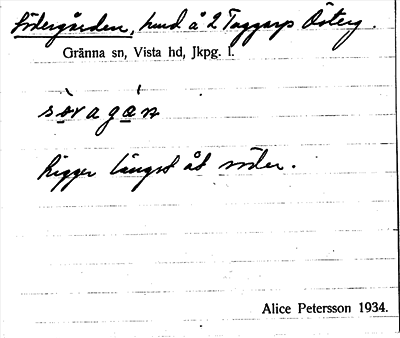 Södergården, hmd å 2 Taggarp Österg.
Gränna sn, Vista hd, Jkpg. l.
søragán
Ligger längst åt söder.
Alice Petersson 1934.